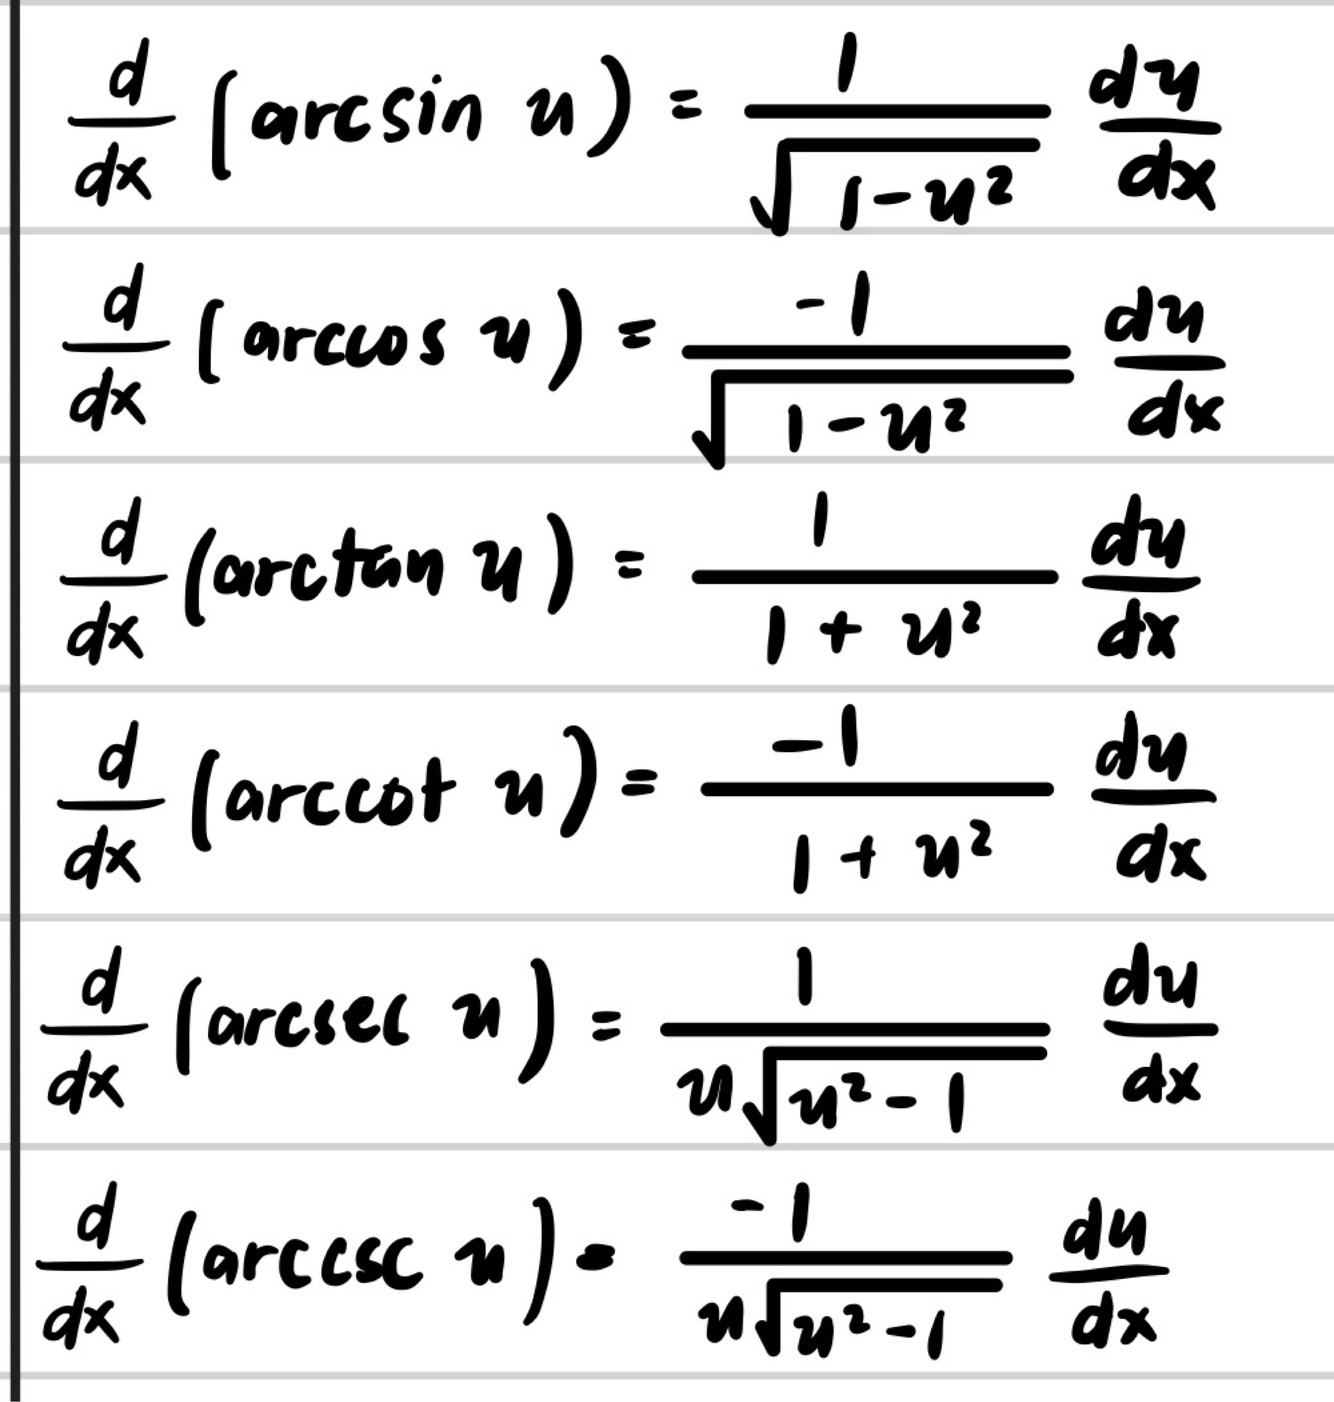 d/dx (arcsin u) = 1/√(1-u²) du/dx
d/dx (arccos u) = -1/√(1-u²) du/dx
d/dx (arctan u) = 1/(1 + u²) du/dx
d/dx (arccot u) = -1/(1 + u²) du/dx
d/dx (arcsec u) = 1/(u√(u²-1)) du/dx
d/dx (arccsc u) = -1/(u√(u²-1)) du/dx